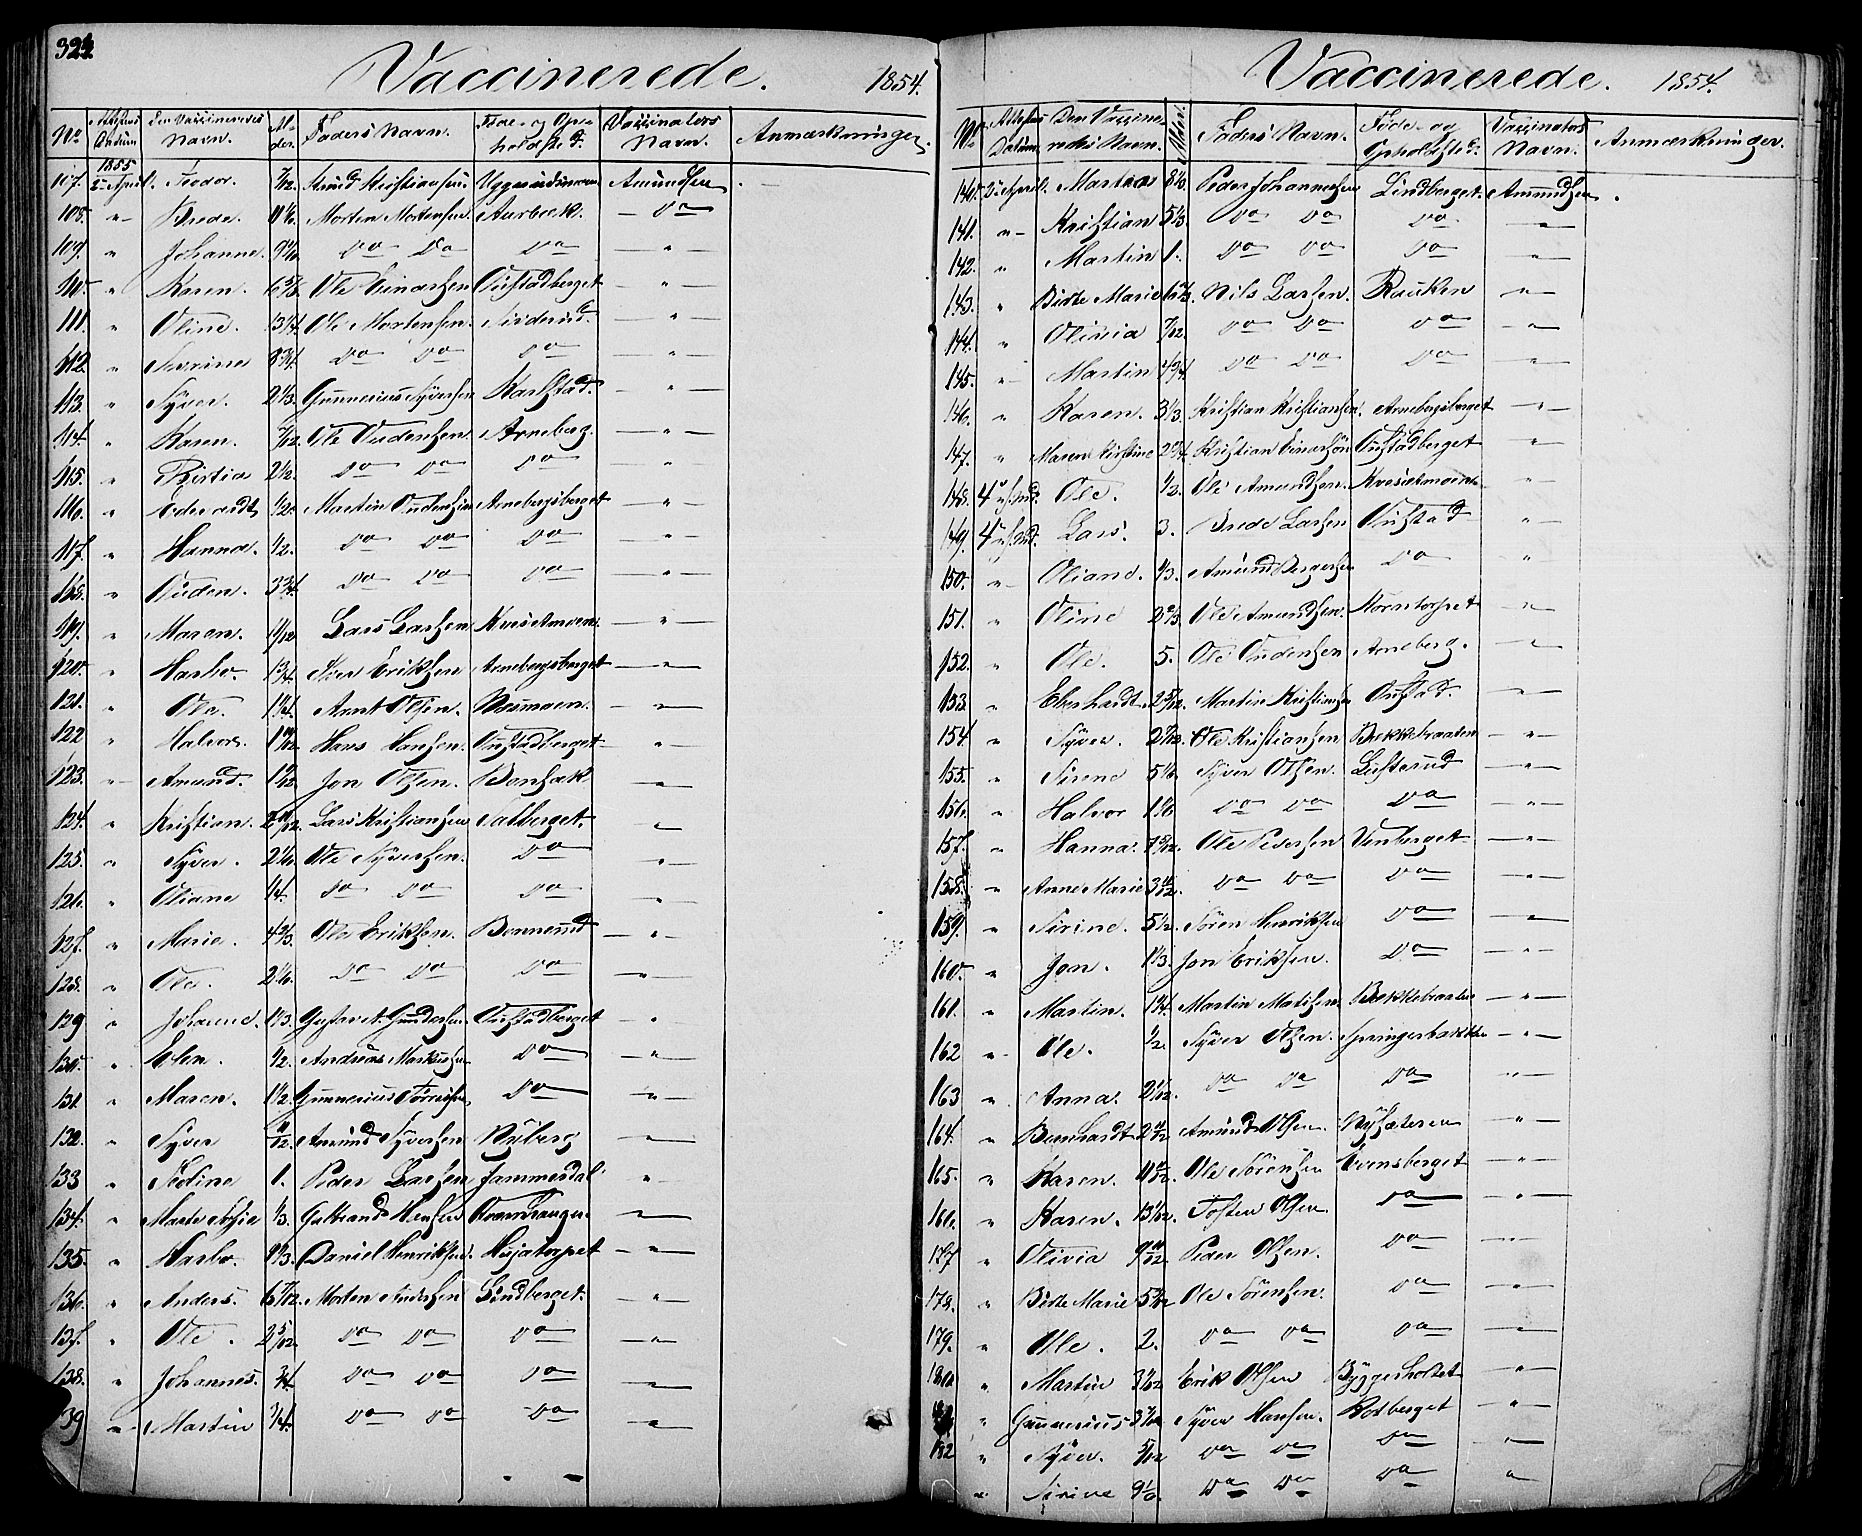 324.
Vaccinerede. 1854.
No. Attestens Datum Den Vaccineredes Navn. Alder. Faders Navn. Føde- og Opholdsted. Vaccinators Navn. Anmærkninger.
1855
107. 2 April. Teodor. 7/12. Amund Kristiansen Amundsen
108. " Brede. Morten Mortensen. Aurbæk. Do
109. " Johanne. Do Do Do "
110. " Karen. 6 Ole Einarsen Oustadberget "
111. " Oline. 3 1/4. Ole Mortensen. "
112. " Severine 8 3/4. Do Do Do "
113. " Syver. 2 1/3. Gunnerius Syversen Karlstad. "
114. " Karen. 7/12 Ole Oudensen. Arneberg. "
115. " 2 1/2. Do Do Do "
116. " Edevardt 1/2. Martin Oudensen Arnebergsberget "
117. " Hanna. 1/2. Do Do Do "
118. " Ouden. 3 3/4. Do Do Do "
119. " Maren. 11/12 Lars Larsen Kvesetmoen. "
120. " Marbo. 1 3/4. Iver Eriksen Arnebergsberget "
121. " Ole. 1 1/4. Arnt Olsen. Moumoen. "
122 " Halvor. Hans Hansen. Oustadberget "
123. " Amund. Jon Olsen. Bonsak "
124. " Kristian. Lars Kristiansen Salberget. "
125. " Syver. 2 1/6. Ole Syversen. Do "
126. " Oliane 1/4. Do Do Do "
127. " Marie. 4 2/3. Ole Eriksen. Bonnerud "
128. " Ole. 2 1/6. Do Do Do "
129 " Johanne. 1 1/3. Gustav Gundersen. Oustadberget "
130. " Elen. 1/2. Andreas Markusen Do "
131. " Maren. 1 1/2. Gunnerius Do "
132. " Syver 11/12 Amund Syversen Nyberg "
133 " Sedine 1. Peder Larsen Jammerdal "
134. " Marte Sofia 1/3. Gulbrand Hensen "
135. " Marbo. Daniel Henriksen. Hisjatorpet "
136. " Anders. 6 7/12. Morten Andersen Lindberget. "
137. " Ole. 2 5/12. Do Do Do "
138. " Johannes. 3/4. Do Do Do "
139 " Martin 3/4. Do Do Do "
Vaccinerede. 1854.
No. Attestens Datum Den Vaccineredes Navn. Alder. Faders Navn. Føde- og Opholdsted. Vaccinators Navn. Anmærkninger.
140. 2 April. Martea 8 1/6. Peder Johannesen Lindberget. Amundsen
141. " Kristian 5 1/3. Do Do Do "
142. " Martin 1. Do Do Do "
143. " Birte Marie Nils Larsen. Rauken "
144. " Olinia 7/12. Do Do Do "
145. " Martin 4 3/4. Do Do Do "
146. " Karen. 3 1/3. Kristian Kristiansen. Arnebergsberget "
147. " Maren Kirstine 2 3/4. Kristian Einarsøn Oustadberget "
148. Ole. 1/2. Ole Amundsen. Kvesetmoen. "
149. Lars. 3. Brede Larsen Oustad "
150. " Oliane. 1/3. Amund Bergersen Do "
151. " Oline 2 2/3. Ole Amundsen. Norntorpet "
152. " Ole. 5. Ole Oudensen Arneberg. "
153. " Eberhardt. 2 5/12. Martin Kristiansen Oustad. "
154. " Syver. 2 7/12. Ole Kristiansen Bækkebraaten "
155. " Sirene 5 1/6. Syver Olsen. Lusterud "
156. " Halvor 1 1/6 Do Do Do "
157. " Hanna. Ole Pedersen Venberget "
158. " Anne Marie 3 Do Do Do "
159. " Sirine. 5 1/2. Sören Henriksen Do "
160. " Jon. 1 1/3. Jon Eriksen. Do "
161. " Martin. 1 3/4. Martin Matisen Bækkebraaten "
162 " Ole. 1/2. Syver Olsen. Springerbakken "
163 " Anna. Do Do Do "
164. " Bernhardt Amund Olsen. Nysæteren "
165. " Karen. Ole Sörensen Evensberget "
166. " Karen. 13 1/12. Tosten Olsen. Do "
177 " Olivia Peder Olsen. Do "
178. " Birte Marie Ole Sörensen. Do "
179. " Ole. 2. Do Do Do "
180 " Martin 3 1/12 Erik Olsen Byggesholtet "
" Gunnerius 3 7/12 Syver Hansen. Rotberget "
182 " Syver. 5/12 Do Do Do "
" Sirine 9 1/6. Do Do Do "